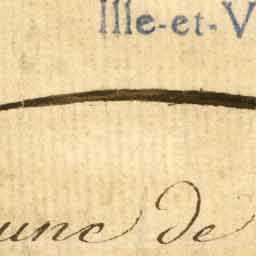 Ille-et-V
une de